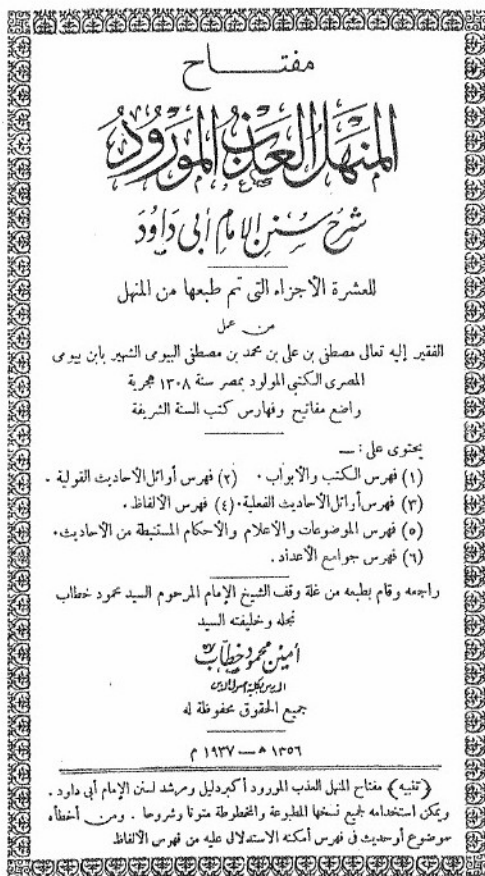 مفتاح
المنهل العذب المورود
شرح سنن الإمام أبي داود
للعشرة الأجزاء التي تم طبعها من المنهل
من عمل
الفقير إليه تعالى مصطفى بن علي بن محمد بن مصطفى البيومي الشهير بابن بيومي
المصري الكتبي المولود بمصر سنة ١٣٠٨ هجرية
واضع مفاتيح وفهارس كتب السنة الشريفة
يحتوى على : —
(١) فهرس الكتب والأبواب . (٢) فهرس أوائل الأحاديث القولية .
(٣) فهرس أوائل الأحاديث الفعلية . (٤) فهرس الألفاظ .
(٥) فهرس الموضوعات والأعلام والأحكام المستنبطة من الأحاديث .
(٦) فهرس جوامع الأعداد .
راجعه وقام بطبعه من غلة وقف الشيخ الإمام المرحوم السيد محمود خطاب
نجله وخليفته السيد
أمين محمود خطاب
المدرس بكلية أصول الدين
جميع الحقوق محفوظة له
١٣٥٦ هـ — ١٩٣٧ م
(تنبيه) مفتاح المنهل العذب المورود أكبر دليل ومرشد لسنن الإمام أبي داود .
ويمكن استخدامه لجميع نسخها المطبوعة والمخطوطة متونا وشروحا . ومن أخطأه
موضوع أو حديث في فهرس أمكنه الاستدلال عليه من فهرس الألفاظ